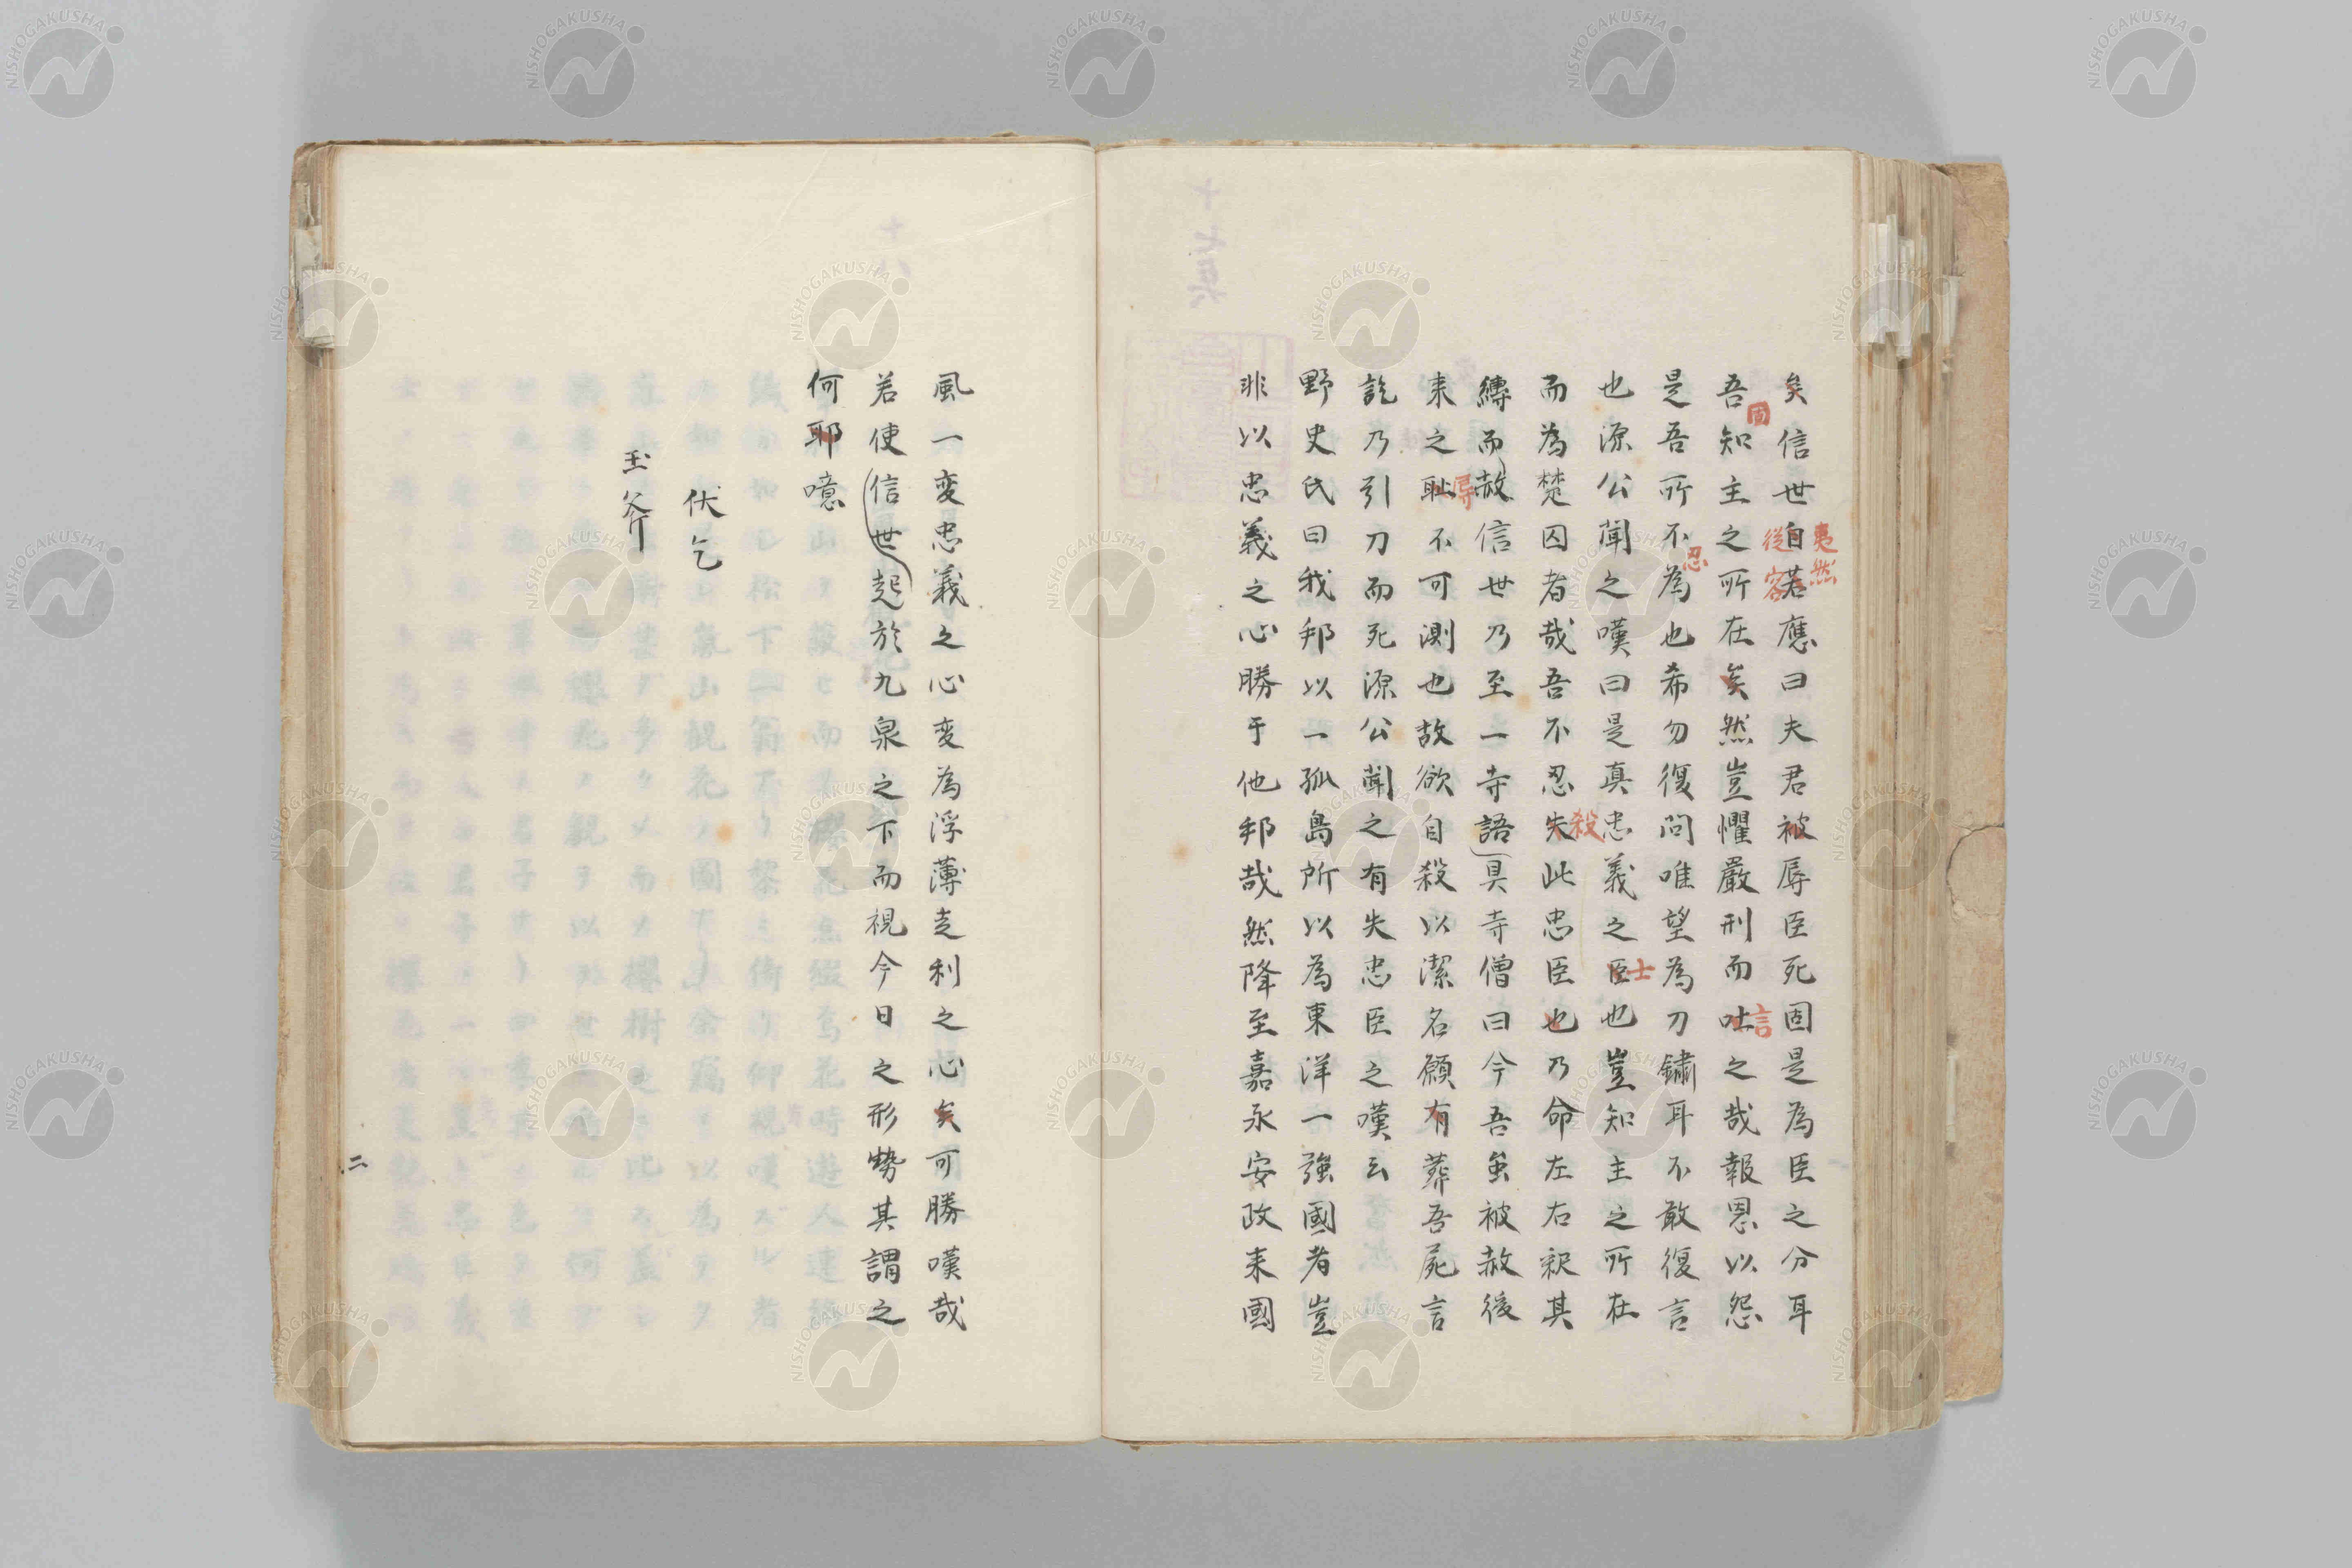 矣信世自若應曰夫君被辱臣死固是為臣之分耳
夷然
從容
吾知主之所在矣然豈懼嚴刑而吐之哉報恩以怨
固
言
是吾所不為也希勿復問唯望為刀鏽耳不敢復言
忍
也源公聞之嘆曰是真忠義之臣也豈知主之所在
士
而為楚囚者哉吾不忍失此忠臣也乃命左右釈其
殺
縛而赦信世乃至一寺語具寺僧曰今吾虽被赦後
来之耻不可測也故欲自殺以潔名願有葬吾屍言
辱
訖乃引刀而死源公聞之有失忠臣之嘆云
野史氏曰我邦以一孤島所以為東洋一強國者豈
非以忠義之心勝于他邦哉然降至嘉永安政来國
風一変忠義之心変為浮薄走利之心矣可勝嘆哉
若使信世起於九泉之下而視今日之形勢其謂之
何耶噫
伏乞
玉斧
二
NISHOGAKUSHA